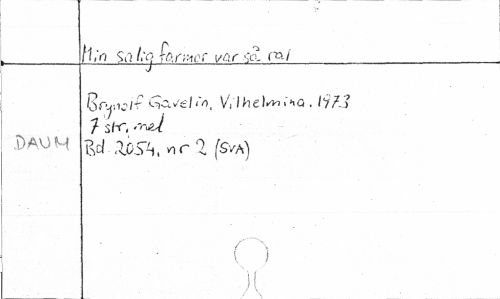 Min salig farmor var så ral
Brynolf Gavelin, Vilhelmina, 1973
7 str, mel
DAUM
Bd 2054, nr 2 (SVA)